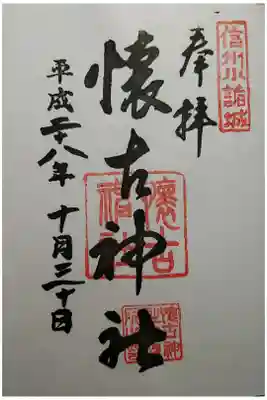 信州小諸城
奉拝
懐古神社
懐古神社
平成二十八年十月三十日